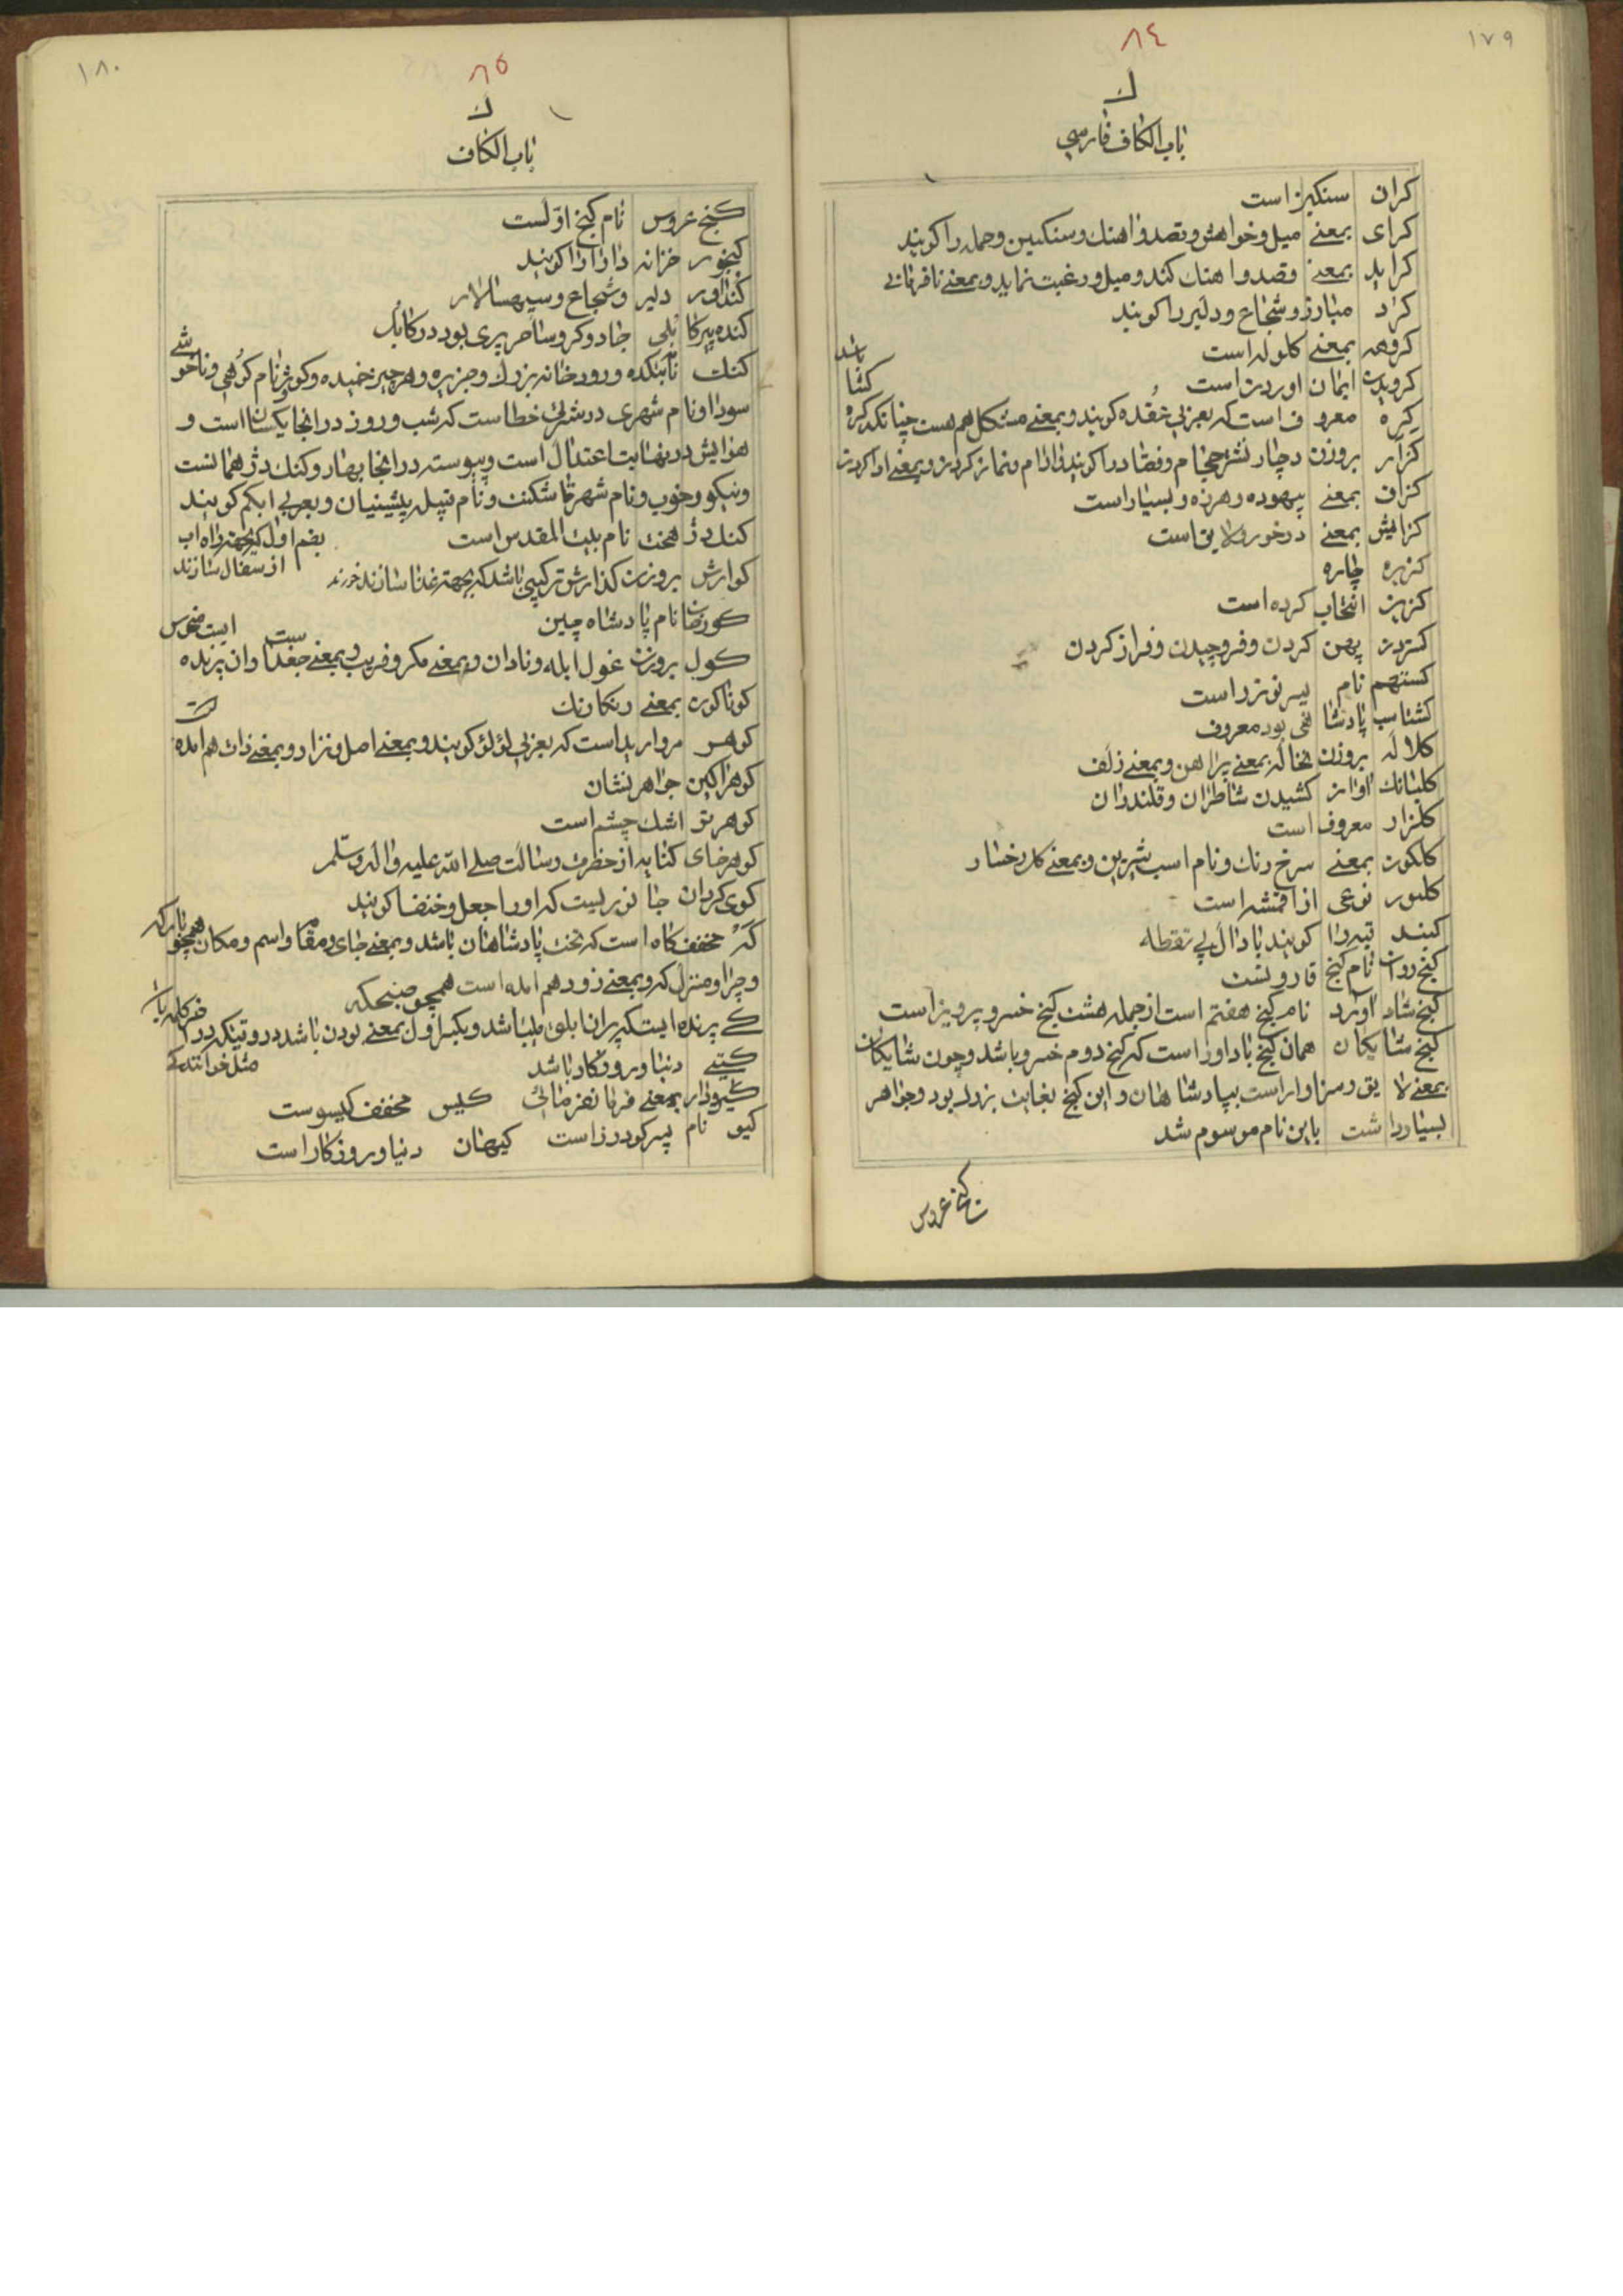 ۱۷۹
۸٤
ك
باب الکاف فارسی
کران سنکین است
کرای بمعنے میل و خواهش و قصد و اهنك و سنکین و حمله را کویند
کراید بمعنے قصد و اهنك کند و میل و رغبت نماید و بمعنے نافرمانے
کرد مبارز و شجاع و دلیر را کویند
کروهه بمعنے کلوله است
کرویدن ایمان اوردن است
کره معروف است که بعربی عقده کویند و بمعنے مشکل هم هست چنانکه کره کشا باشد
کزار بروزن دچار نشتر حجام و فصاد را کویند و بمعنے ادا کردن
کزاف بمعنے بیهوده و هرزه و بسیار است
کزایش بمعنے درخور و لایق است
کزیره چاره
کزین انتخاب کرده است
کستردن پهن کردن و فروچیدن و فراز کردن
کستهم نام پسر نوذر است
کشتاسب پادشاهی بود معروف
کلاله بروزن نخاله بمعنے پیراهن و بمعنے زلف
کلبانك اواز کشیدن شاطران و قلندران
کلزار معروف است
کلکون بمعنے سرخ رنك و نام اسب شیرین و بمعنے کل رخسار
نوعی از اقمشه است
کنبد قبه را کویند با دال بی نقطه
کنج روان نام کنج قارونست
کنج شاد اورد نام کنج هفتم است از جمله هشت کنج خسرو پرویز است
کنج شایکان همان کنج باداور است که کنج دوم خسرو باشد و چون شایکان
بمعنے لایق و سزاوار است بپادشاهان و این کنج بغایت بزرك بود و جواهر
بسیار داشت باین نام موسوم شد
کنج عروس
۱۸۰
۸۵
ك
باب الکاف
کنج عروس نام کنج اوّلست
کنجور خزانه دار را کویند
کنداور دلیر و شجاع و سپهسالار
کنده پیر کابلی جادوکر و ساحر پیری بود در کابل
کنك نام بتکده و رودخانه بزرك و جزیره و هر چیز خمیده و کوژ و نام کوهی و ناخوشے
سودا و نام شهری در شرقی خطاست که شب و روز در انجا یکسان است و
هوایش در نهایت اعتدال است و پیوسته در انجا بهار و کنك دژ همانست
و نیکو و خوب و نام شهر تاشکنت و نام پیشینیان و بعربی ابکم کویند
کنك دژ هخت نام بیت المقدس است بضم اول که بجهة راه اب از سفال سازند
کوارش بروزن کذارش ترکیبی باشد که بجهة غذا سازند خورند
کورخان نام پادشاه چین
کول بروزن غول ابله و نادان و بمعنے مکر و فریب و بمعنے جغد است و ان پرنده ایست منحوس
کوناکون بمعنے رنکارنك
کوهر مروارید است که بعربی لؤلؤ کویند و بمعنے اصل و نژاد و بمعنے ذات هم امده است
کوهراکین جواهر نشان
کوهر تر اشك چشم است
کنایه از حضرت رسالت صلے الله علیه و اله و سلّم
کوی کردان جانوریست که او را جعل و خنفسا کویند
که مخفف کاه است که تخت پادشاهان باشد و بمعنے جای و مقام و اسم و مکان همچو بارکه
و چراو منزل که و بمعنے زود هم امده است همچو صبحکه
کے پرنده ایست که پر انا بلق میباشد و بکسر اول بمعنے بودن باشد در وقتیکه در اخر کلمه باشد مثل
کیتے دنیا و روزکار باشد
کیرودار بمعنے فرمانفرمائی کیس مخفف کیسوست
کیو نام پسر کودرز است کیهان دنیا و روزکار است